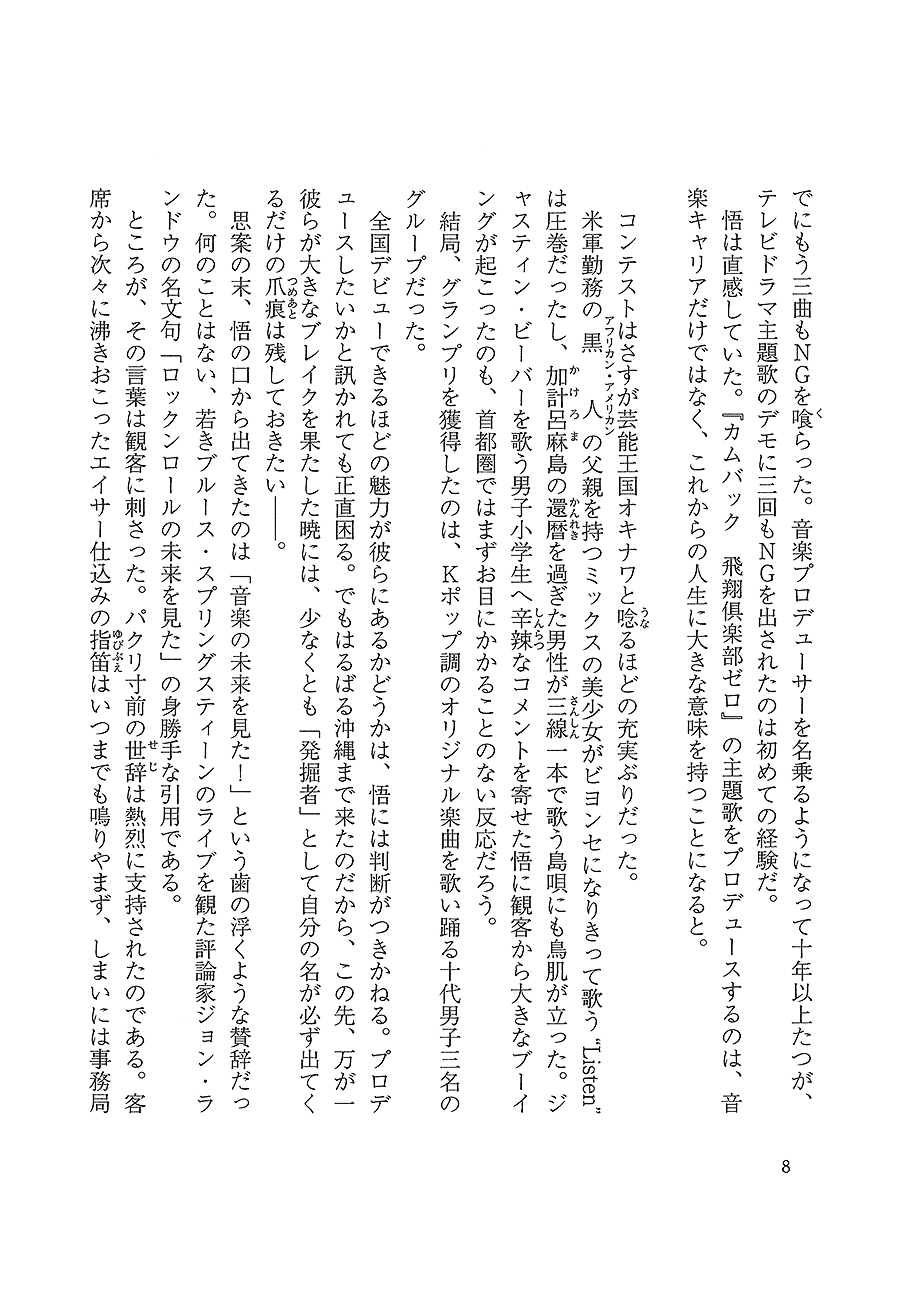 でにもう三曲もNGを喰らった。音楽プロデューサーを名乗るようになって十年以上たつが、
テレビドラマ主題歌のデモに三回もNGを出されたのは初めての経験だ。
悟は直感していた。『カムバック　飛翔倶楽部ゼロ』の主題歌をプロデュースするのは、音
楽キャリアだけではなく、これからの人生に大きな意味を持つことになると。
コンテストはさすが芸能王国オキナワと唸るほどの充実ぶりだった。
米軍勤務の黒人の父親を持つミックスの美少女がビヨンセになりきって歌う“Listen”
は圧巻だったし、加計呂麻島の還暦を過ぎた男性が三線一本で歌う島唄にも鳥肌が立った。ジ
ャスティン・ビーバーを歌う男子小学生へ辛辣なコメントを寄せた悟に観客から大きなブーイ
ングが起こったのも、首都圏ではまずお目にかかることのない反応だろう。
結局、グランプリを獲得したのは、Kポップ調のオリジナル楽曲を歌い踊る十代男子三名の
グループだった。
全国デビューできるほどの魅力が彼らにあるかどうかは、悟には判断がつきかねる。プロデ
ュースしたいかと訊かれても正直困る。でもはるばる沖縄まで来たのだから、この先、万が一
彼らが大きなブレイクを果たした暁には、少なくとも「発掘者」として自分の名が必ず出てく
るだけの爪痕は残しておきたい――。
思案の末、悟の口から出てきたのは「音楽の未来を見た！」という歯の浮くような賛辞だっ
た。何のことはない、若きブルース・スプリングスティーンのライブを観た評論家ジョン・ラ
ンドウの名文句「ロックンロールの未来を見た」の身勝手な引用である。
ところが、その言葉は観客に刺さった。パクリ寸前の世辞は熱烈に支持されたのである。客
席から次々に沸きおこったエイサー仕込みの指笛はいつまでも鳴りやまず、しまいには事務局
く
うな
アフリカン・アメリカン
さんしん
かけろま
かんれき
しんらつ
つめあと
せじ
ゆびぶえ
8